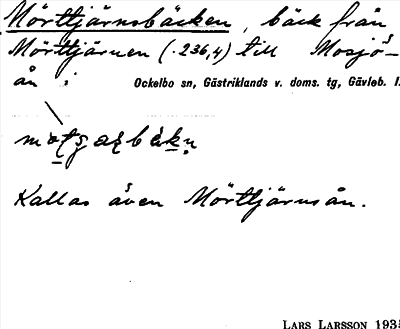 Mörttjärnsbäcken, bäck från
Mörttjärnen (.236,4) till Mosjö-
ån i Ockelbo sn, Gästriklands v. doms. tg, Gävleb. l.
Kallas även Mörttjärnsån.
LARS LARSSON 1935